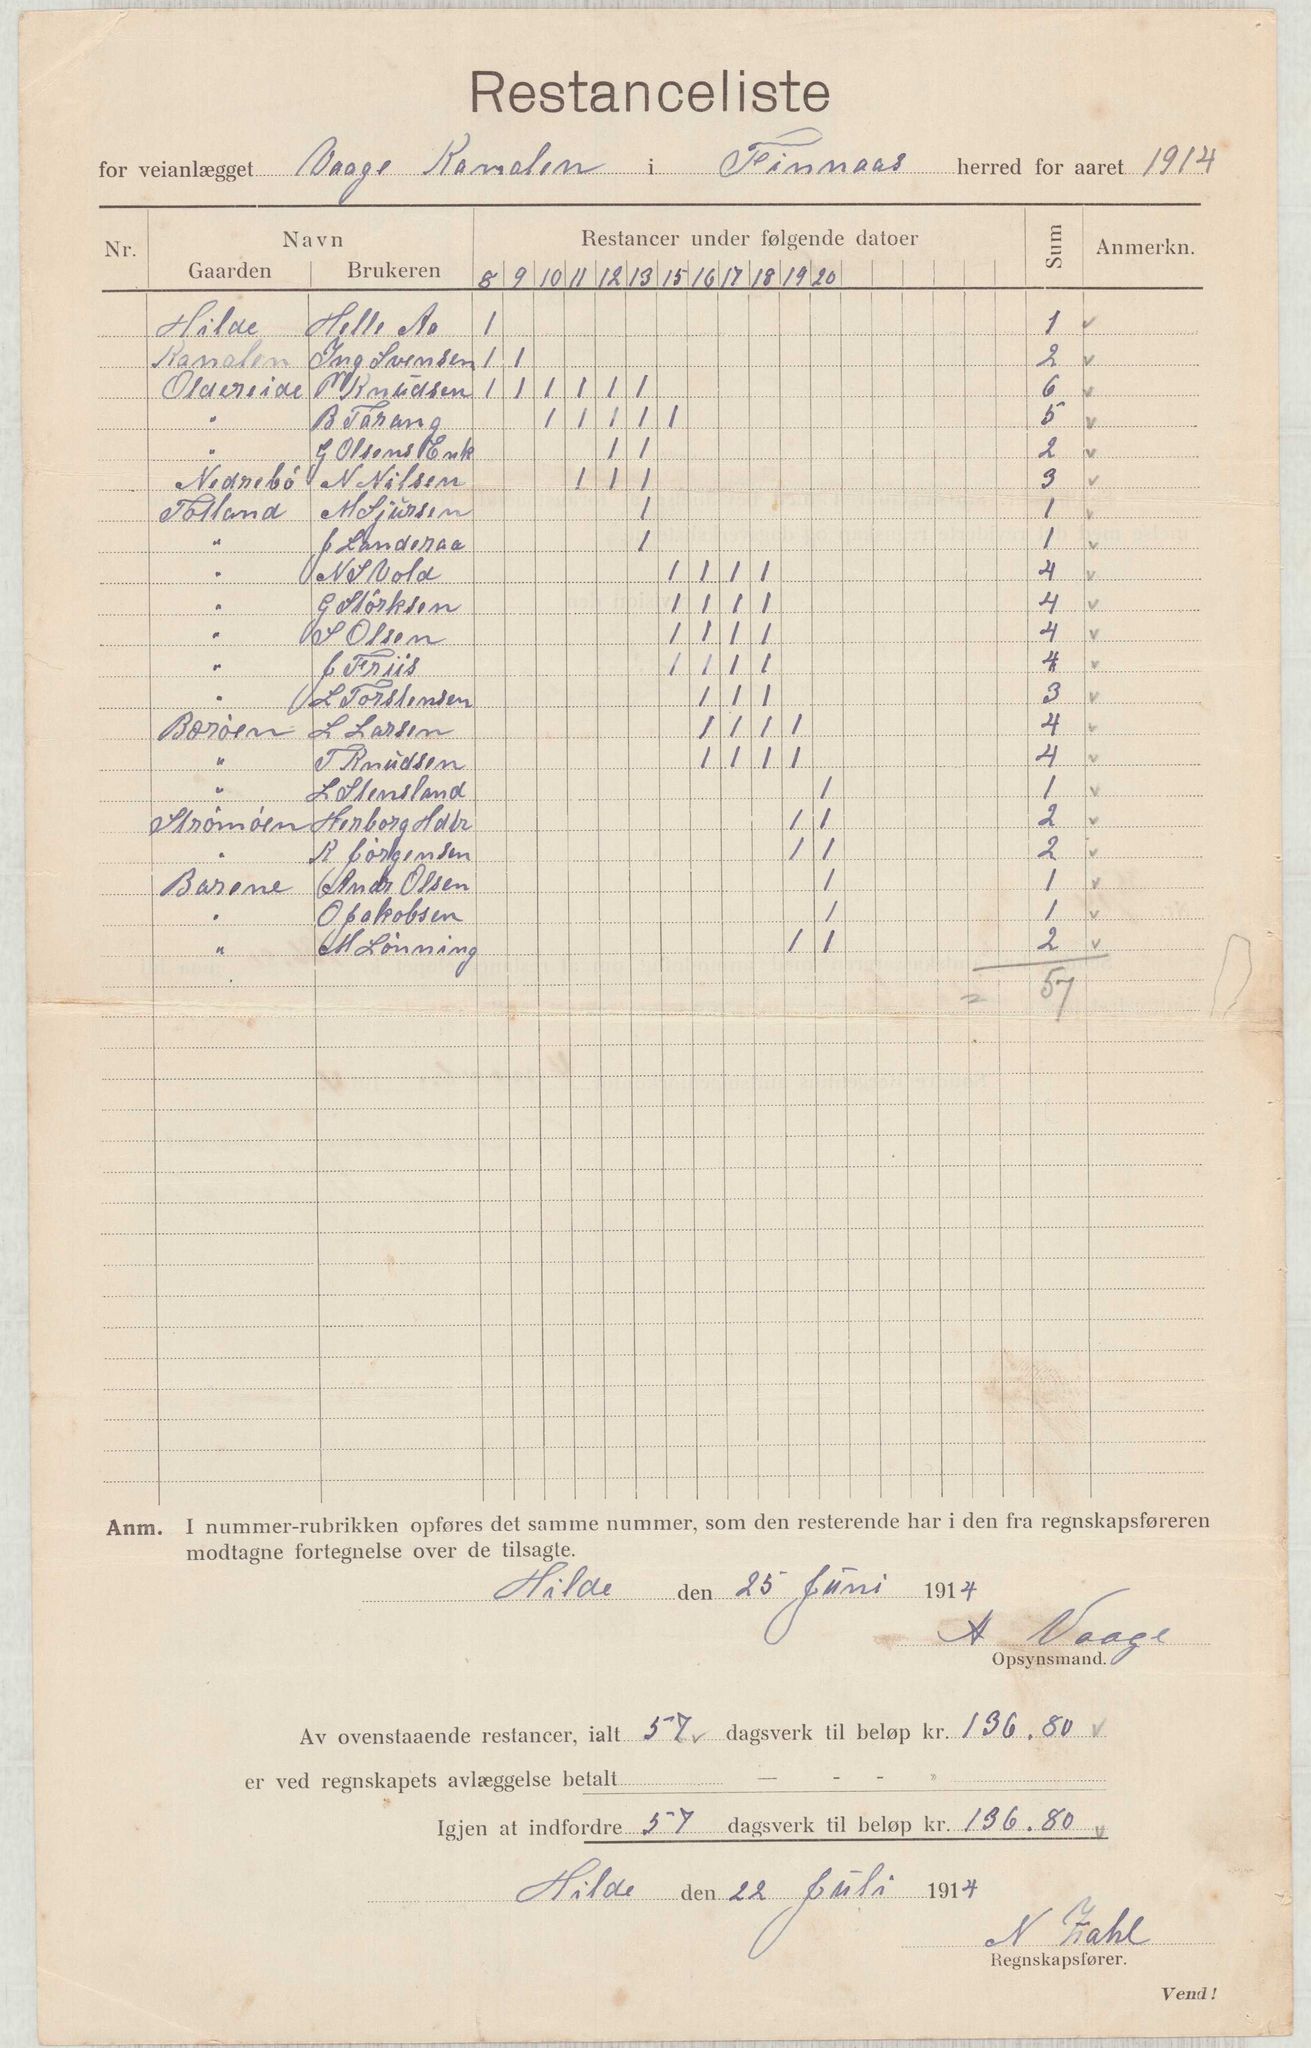 Restanceliste
for veianlægget Vaage Kanalen i Finnaas herred for aaret 1914
Nr. Navn Restancer under følgende datoer Sum Anmerkn.
Gaarden Brukeren 8 9 10 11 12 13 15 16 17 18 19 20
Hilde Helle Ao 1 1 v
Kanalen Ing Svensen 1 1 2 v
Oldereide M Knudsen 1 1 1 1 1 1 6 v
" B Tarang 1 1 1 1 1 5 v
" G Olsens Enk 1 1 2 v
Nedrebö N Nilsen 1 1 1 3 v
Tolland M Sjursen 1 1 v
" J Landeraa 1 1 v
" N S Vold 1 1 1 1 4 v
" G Störksen 1 1 1 1 4 v
" S Olsen 1 1 1 1 4 v
" J Friis 1 1 1 1 4 v
" L Torstensen 1 1 1 3 v
Beröen L Larsen 1 1 1 1 4 v
" T Knudsen 1 1 1 1 4 v
" L Stensland 1 1 v
Strömöen Herborg Hdtr 1 1 2 v
" R Jörgensen 1 1 2 v
Barene Andr Olsen 1 1 v
" O Jakobsen 1 1 v
" M Lönning 1 1 2 v
= 57
Anm. I nummer-rubrikken opføres det samme nummer, som den resterende har i den fra regnskapsføreren
modtagne fortegnelse over de tilsagte.
Hilde den 25 Juni 1914
A Vaage
Opsynsmand.
Av ovenstaaende restancer, ialt 57 v dagsverk til beløp kr. 136.80 v
er ved regnskapets avlæggelse betalt — - - "
Igjen at indfordre 57 dagsverk til beløp kr. 136.80 v
Hilde den 22 Juli 1914
N Zahl
Regnskapsfører.
Vend!